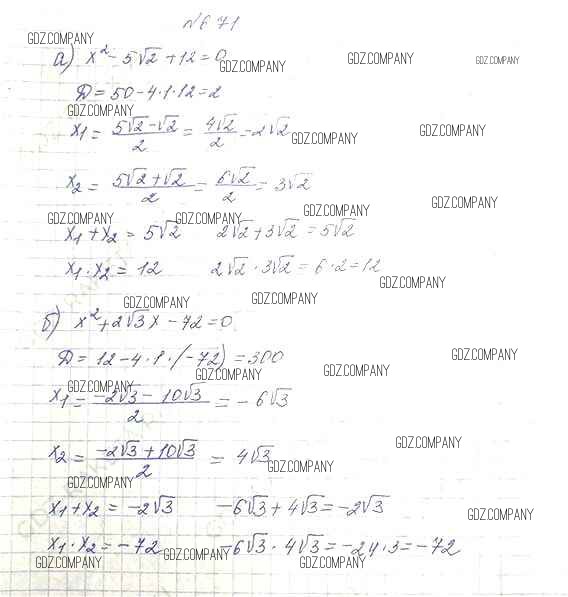 №671
GDZ.COMPANY
а) x² - 5√2 + 12 = 0
GDZ.COMPANY GDZ.COMPANY GDZ.COMPANY
D = 50 - 4·1·12 = 2
GDZ.COMPANY
x₁ = (5√2 - √2)/2 = 4√2/2 = 2√2
GDZ.COMPANY GDZ.COMPANY
x₂ = (5√2 + √2)/2 = 6√2/2 = 3√2
GDZ.COMPANY GDZ.COMPANY GDZ.COMPANY GDZ.COMPANY
x₁ + x₂ = 5√2 2√2 + 3√2 = 5√2
x₁ · x₂ = 12 2√2 · 3√2 = 6 · 2 = 12
GDZ.COMPANY GDZ.COMPANY GDZ.COMPANY
б) x² + 2√3x - 72 = 0
D = 12 - 4·1·(-72) = 300
GDZ.COMPANY
GDZ.COMPANY GDZ.COMPANY GDZ.COMPANY
x₁ = (-2√3 - 10√3)/2 = -6√3
GDZ.COMPANY
x₂ = (-2√3 + 10√3)/2 = 4√3
GDZ.COMPANY
GDZ.COMPANY
x₁ + x₂ = -2√3 -6√3 + 4√3 = -2√3
GDZ.COMPANY
x₁ · x₂ = -72 -6√3 · 4√3 = -24·3 = -72
GDZ.COMPANY GDZ.COMPANY GDZ.COMPANY